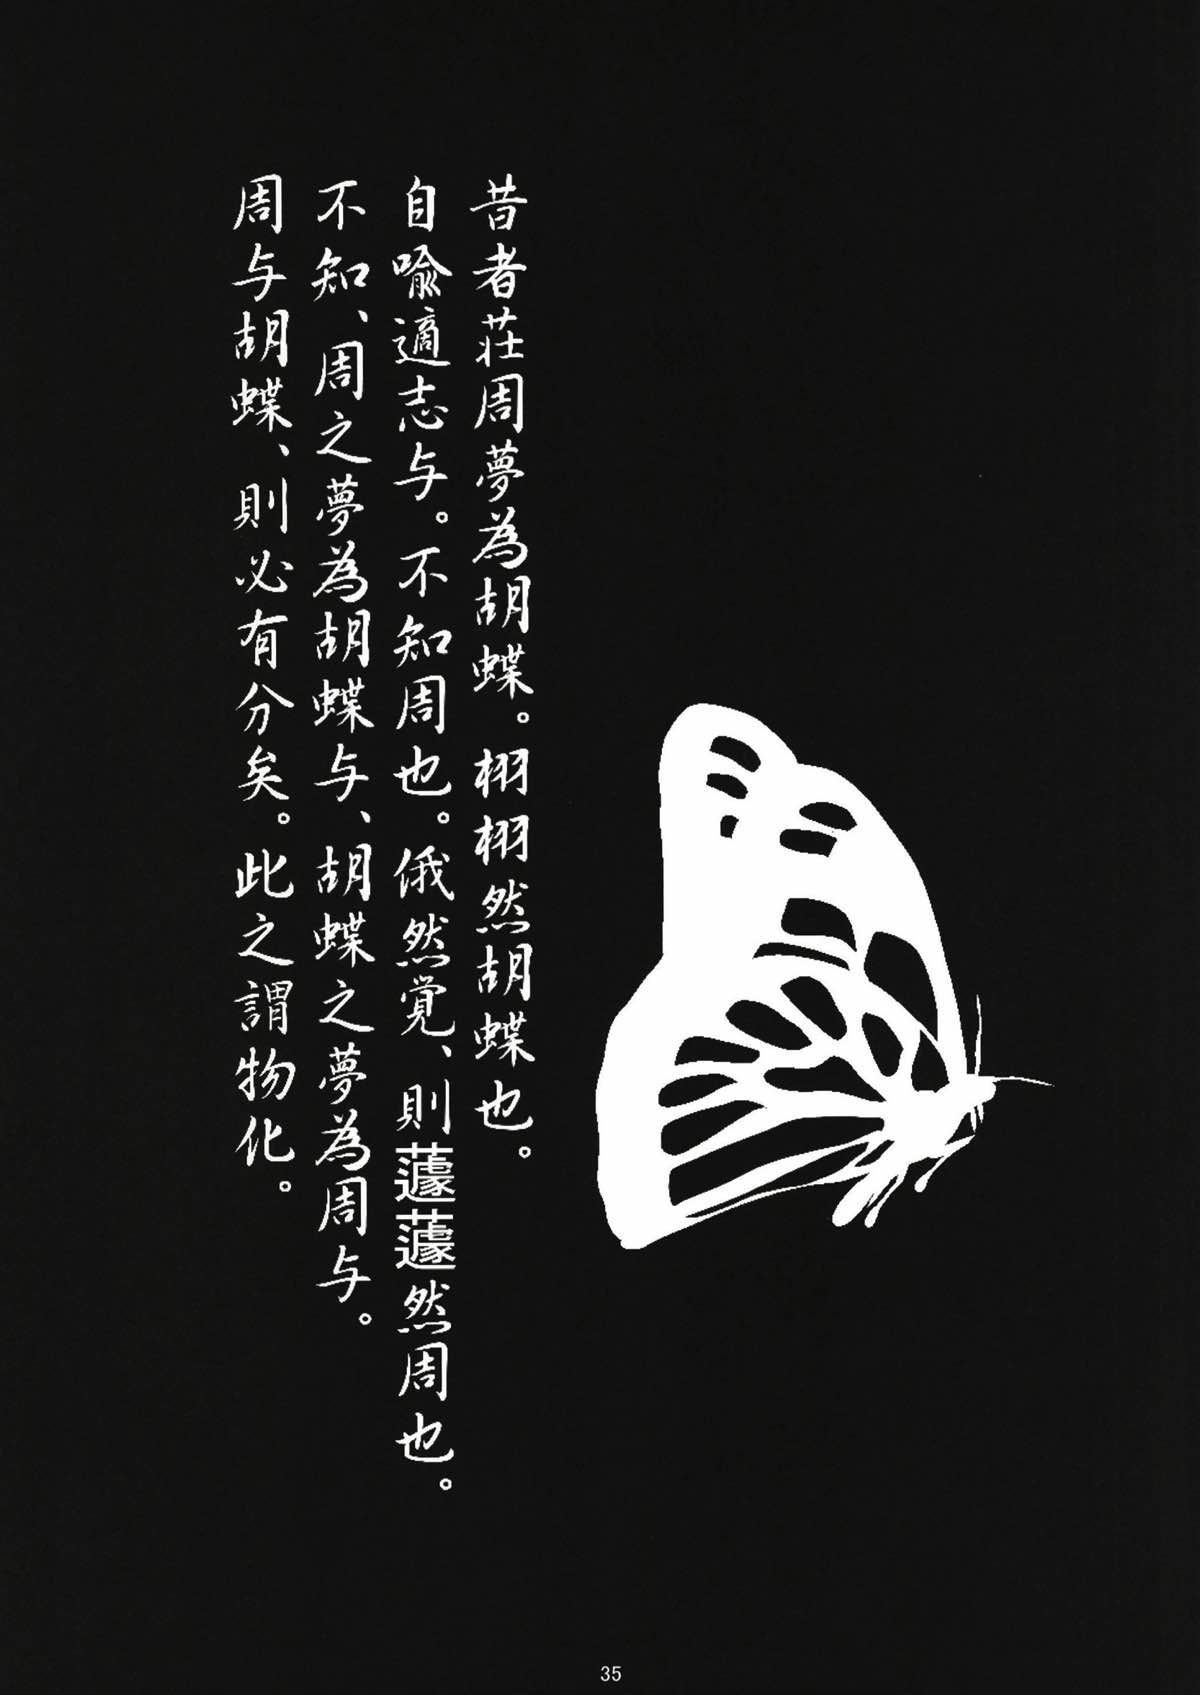 昔者荘周夢為胡蝶。栩栩然胡蝶也。
自喩適志与。不知周也。俄然覚、則蘧蘧然周也。
不知、周之夢為胡蝶与、胡蝶之夢為周与。
周与胡蝶、則必有分矣。此之謂物化。
35